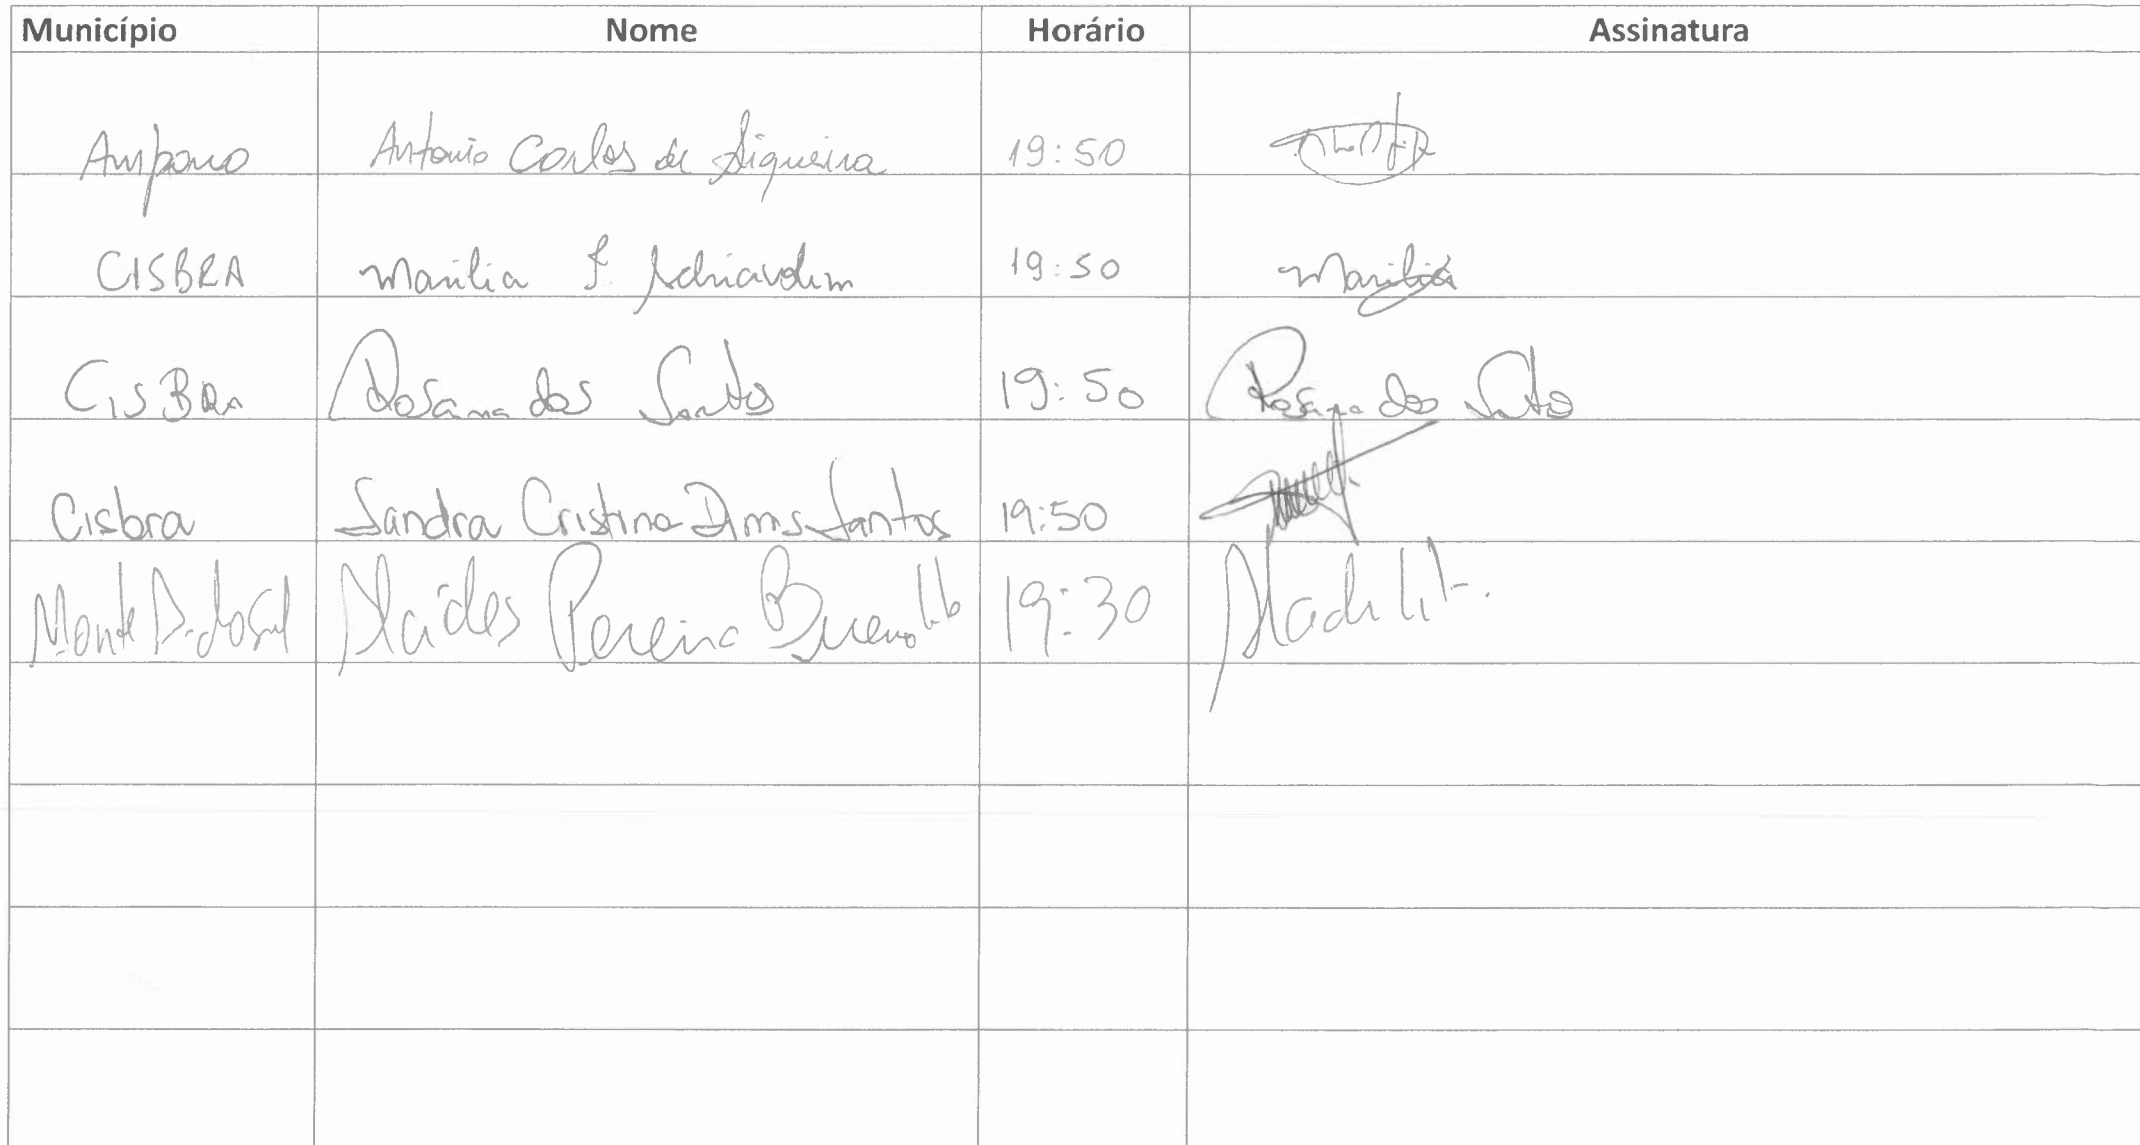 Município Nome Horário Assinatura
Amparo Antonio Carlos de Siqueira 19:50
CISBRA Marilia F. 19:50 Marilia
CISBRA Rosana dos Santos 19:50 Rosana dos Santos
Cisbra Sandra Cristina Santos 19:50
Monte A. do Sul Pereira Bueno 19:30